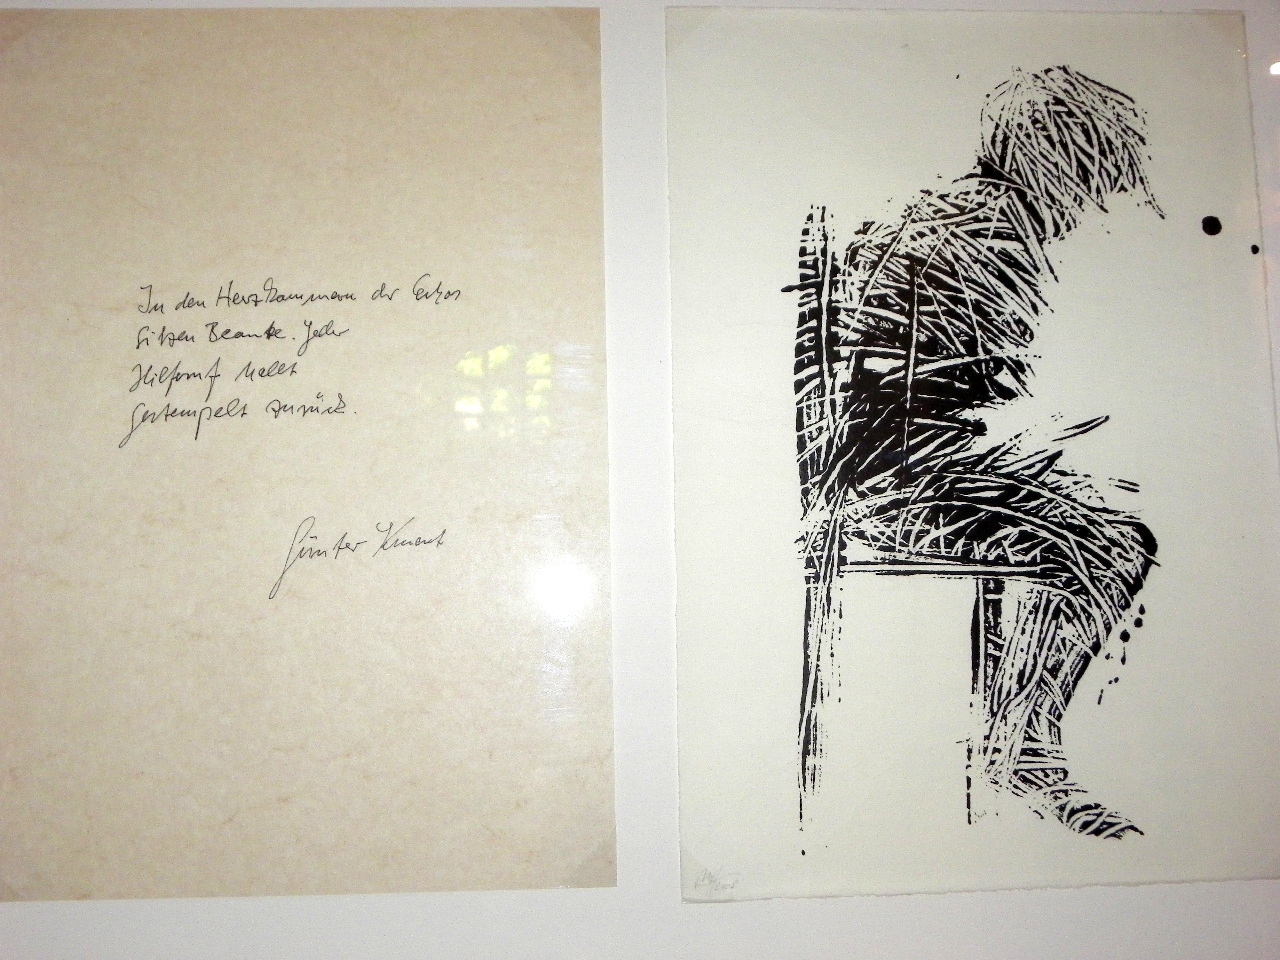 In den Herzkammern der Echos
sitzen Beamte. Jeder
Hilferuf hallt
gestempelt zurück.
Günter Kunert